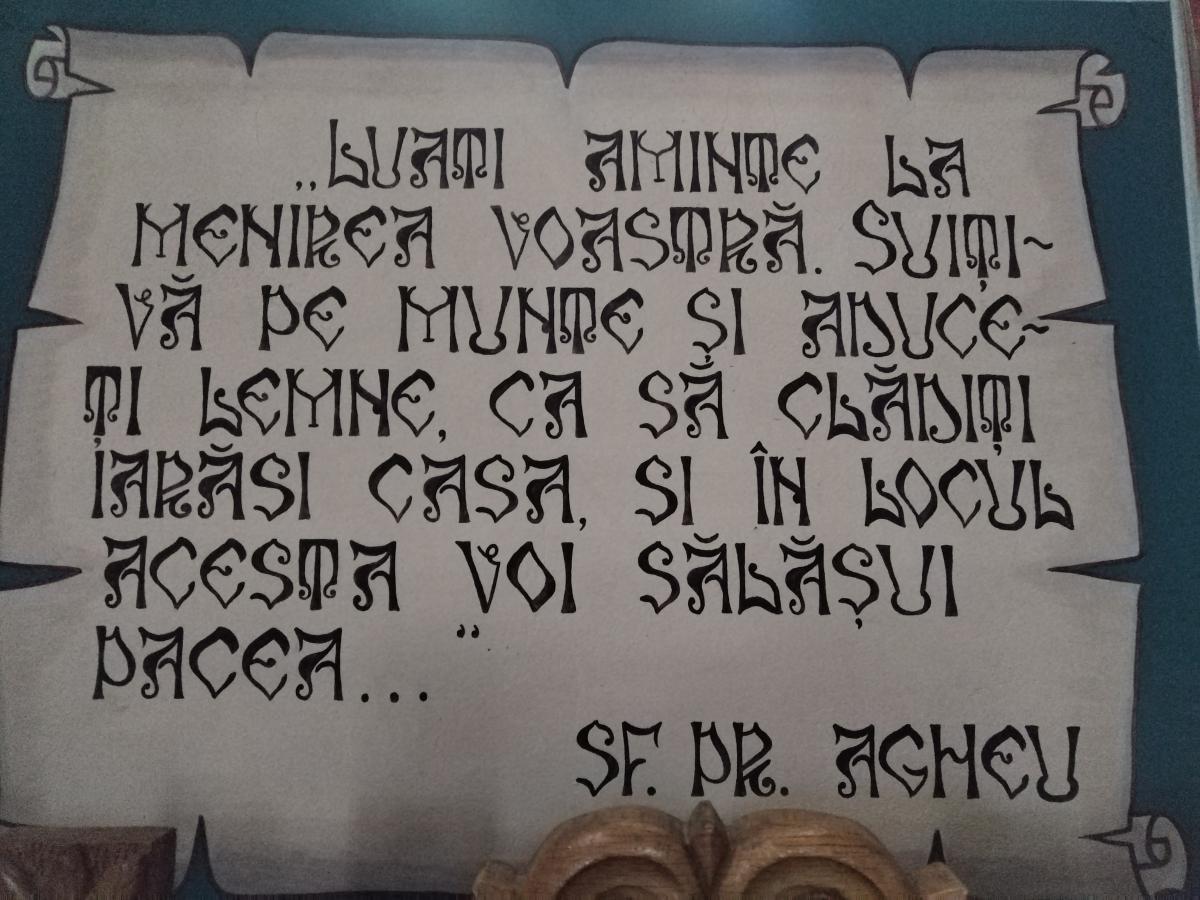 „LUATI AMINTE LA
MENIREA VOASTRĂ. SUIȚI~
VĂ PE MUNTE ȘI ADUCE~
ȚI LEMNE, CA SĂ CLĂDIȚI
IARĂSI CASA, SI ÎN LOCUL
ACESTA VOI SĂLĂȘUI
PACEA... ”
SF. PR. AGHEU